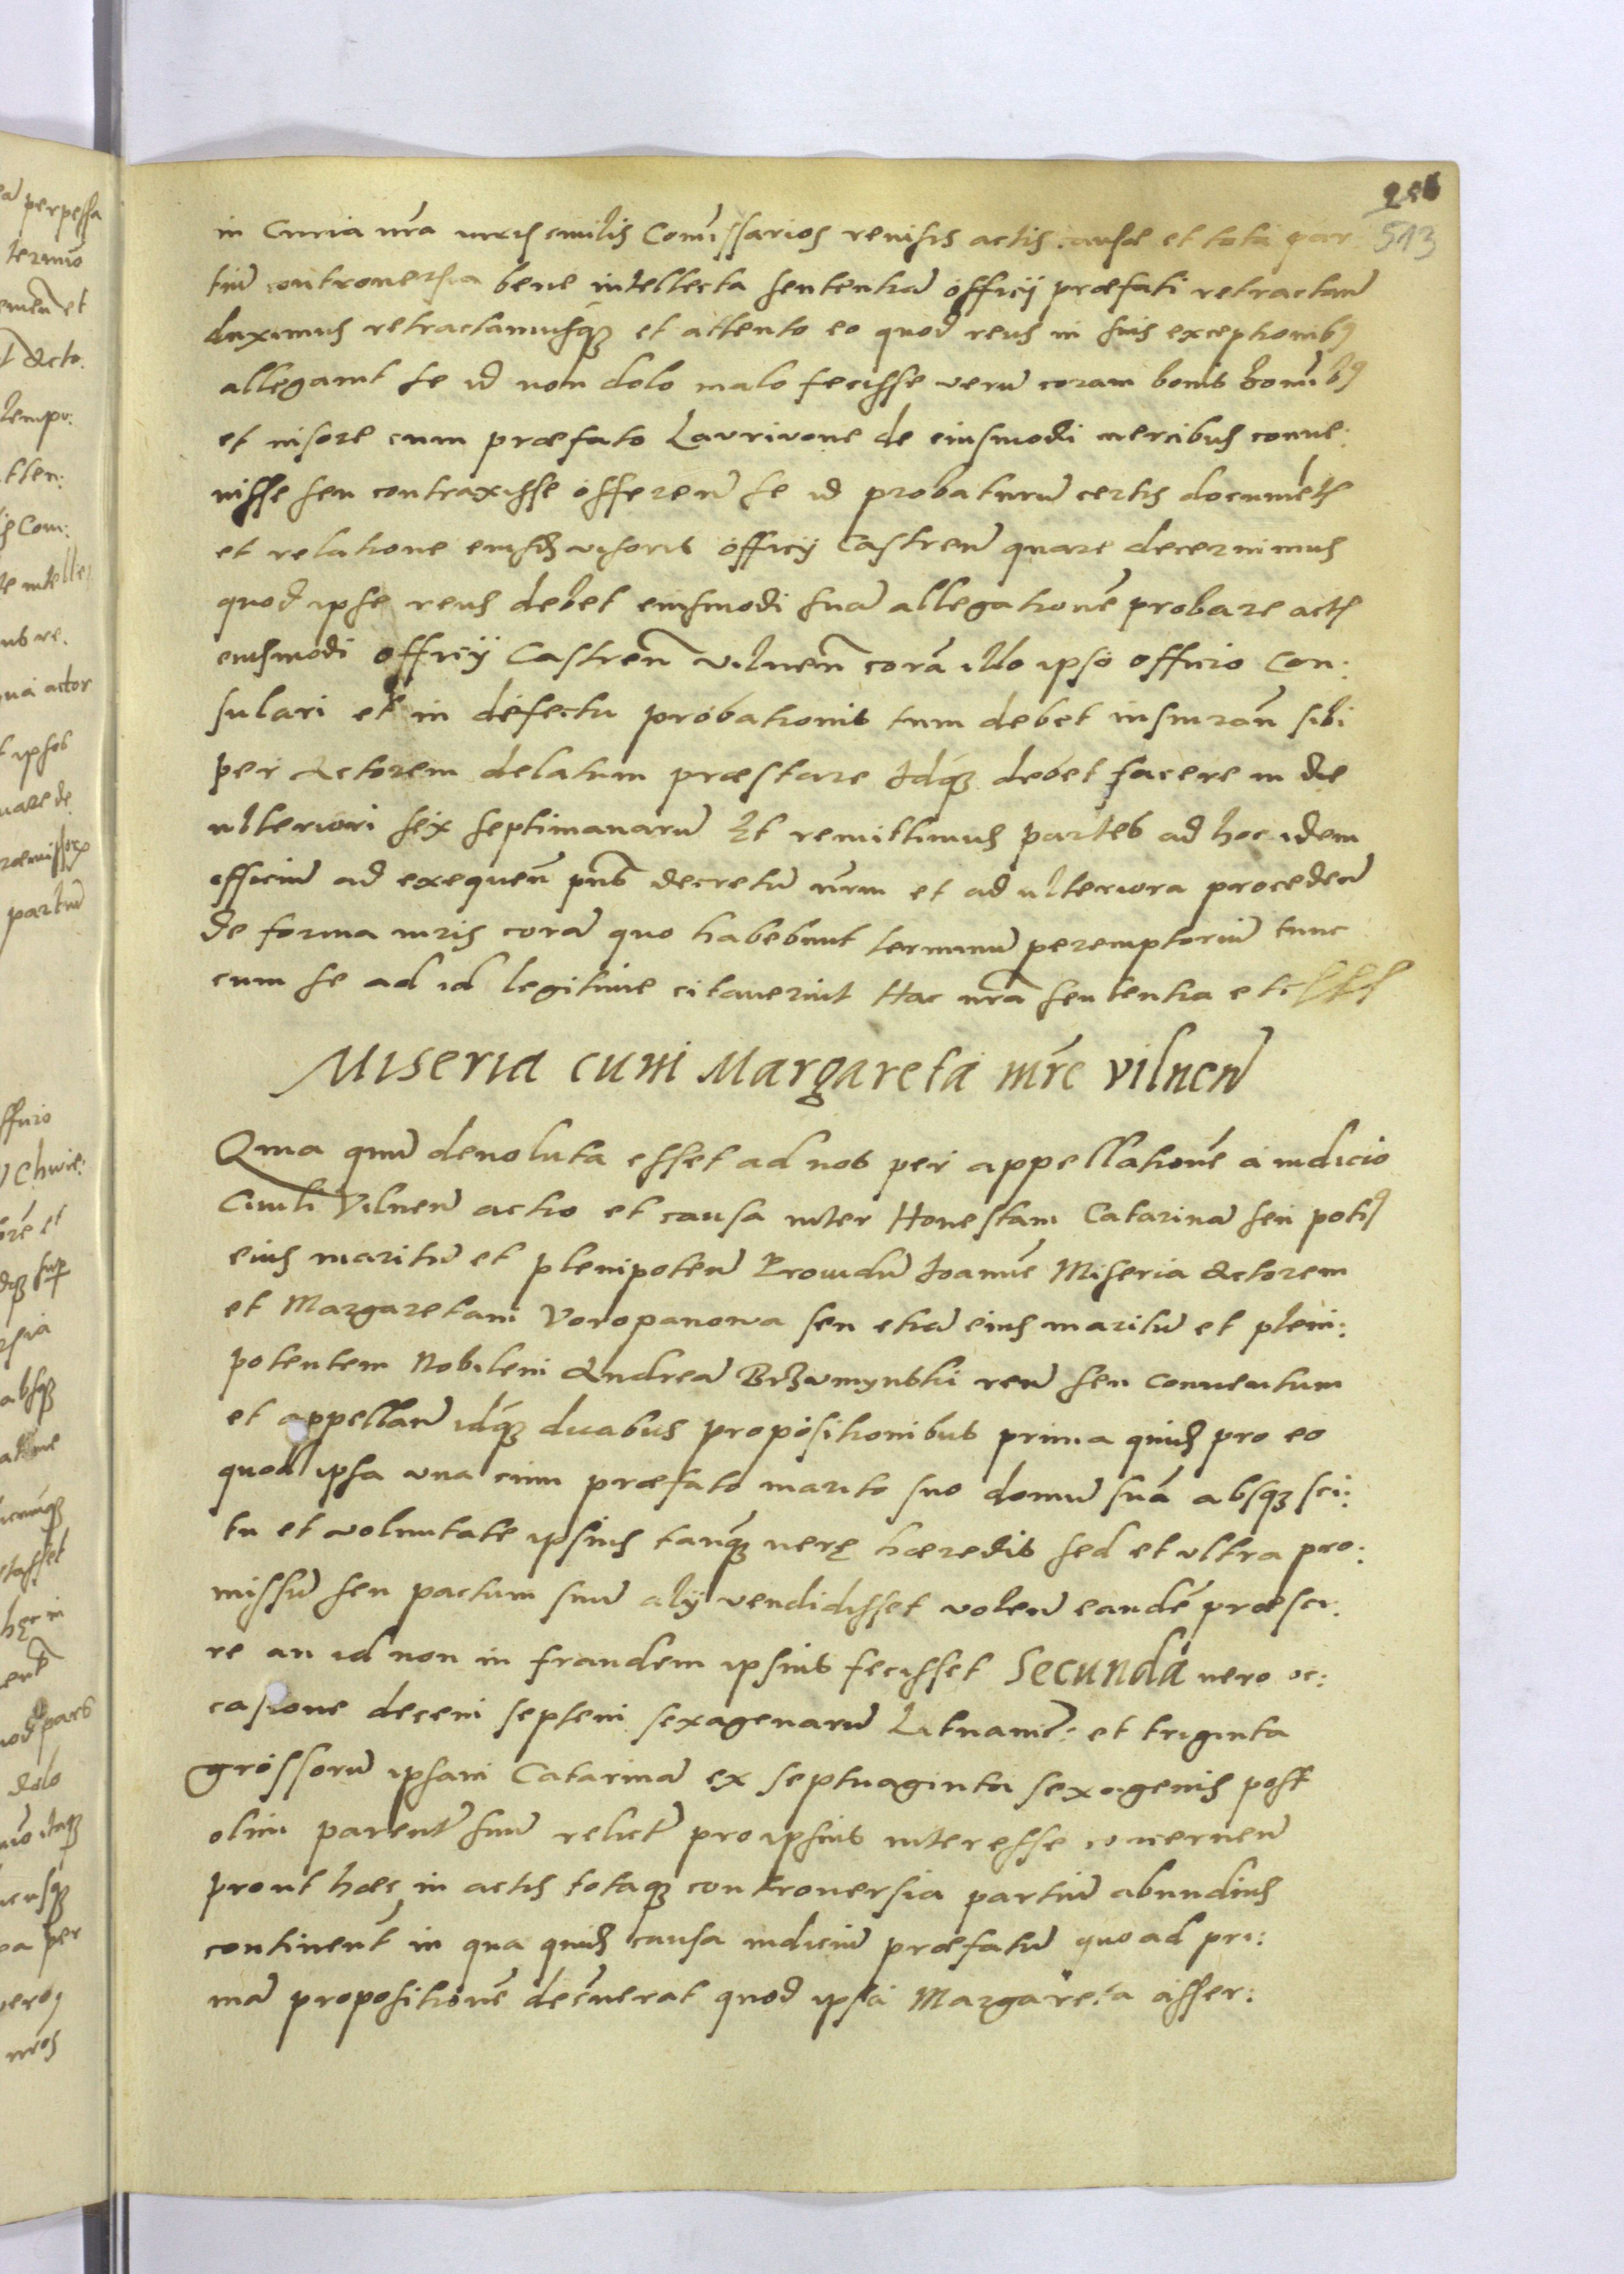 256
513
in Curia nrã iuris ciuilis Com̃issarios reuisis actis causæ et tota par
tiũ controuersia bene intellecta sententiã officij præfati retractanđ
duximus retractamusq₃ et attento eo quod reus in suis exceptionib₉
allegauit se id non dolo malo fecisse verũ coram bonis homĩb₉
et uisore cum præfato Lavrivone de eiusmodi mercibus conue:
nisse seu contraxisse offerenđ se id probaturũ certis documẽtis
et relatione eiusđ visoris officij Castreñ quare decernimus
quod ipse reus debet eiusmodi suã allegationẽ probare actis
eiusmodi officij Castreñ vilneñ corã illo ipso officio Con:
sulari et in defectu probationis tum debet iusiurañ sibi
per Actorem delatum præstare Idq₃ debet facere in die
ulteriori sex septimanarũ Et remittimus partes ad hoc idem
officiũ ad exequeñ pñs decretũ nr̃m et ad ulteriora procedenđ
de forma iuris corã quo habebunt terminũ peremptoriũ tunc
cum se ad id legitime citauerint Hac nrã sententia etc
Miseria cum Margareta mr̃e vilneñ
Quia quũ deuoluta esset ad nos per appellationẽ a iudicio
Ciuili Vilneñ actio et causa inter Honestam Catarinã seu poti₉
eius maritũ et plenipoteñ Prouidũ Joannẽ Miseria Actorem
et Margaretam Voropanowa seu etiã eius maritũ et pleni:
potentem Nobilem Andreã Brzumynski reũ seu conuentum
et appellañ idq₃ duabus propositionibus prima quiđ pro eo
quod ipsa una cum præfato marito suo domũ suã absq₃ sci:
tu et voluntate ipsius tanq₃ verę hæredis sed et ultra pro:
missũ seu pactum suũ alij vendidisset voleñ eandẽ præsci:
re an id non in fraudem ipsius fecisset Secunda uero oc:
casione decem septem sexagenarũ Lituaniẽ: et triginta
grossorũ ipsam Catarinã ex septuaginta sexagenis post
olim parent̃ suũ relict̃ pro ipsius interesse concerneñ
prout hæc in actis totaq₃ controuersia partiũ abundius
continent̃ in qua quiđ causa iudiciũ præfatũ quo ad pri:
mã propositionẽ decr̃uerat quod ipsa Margareta asser: